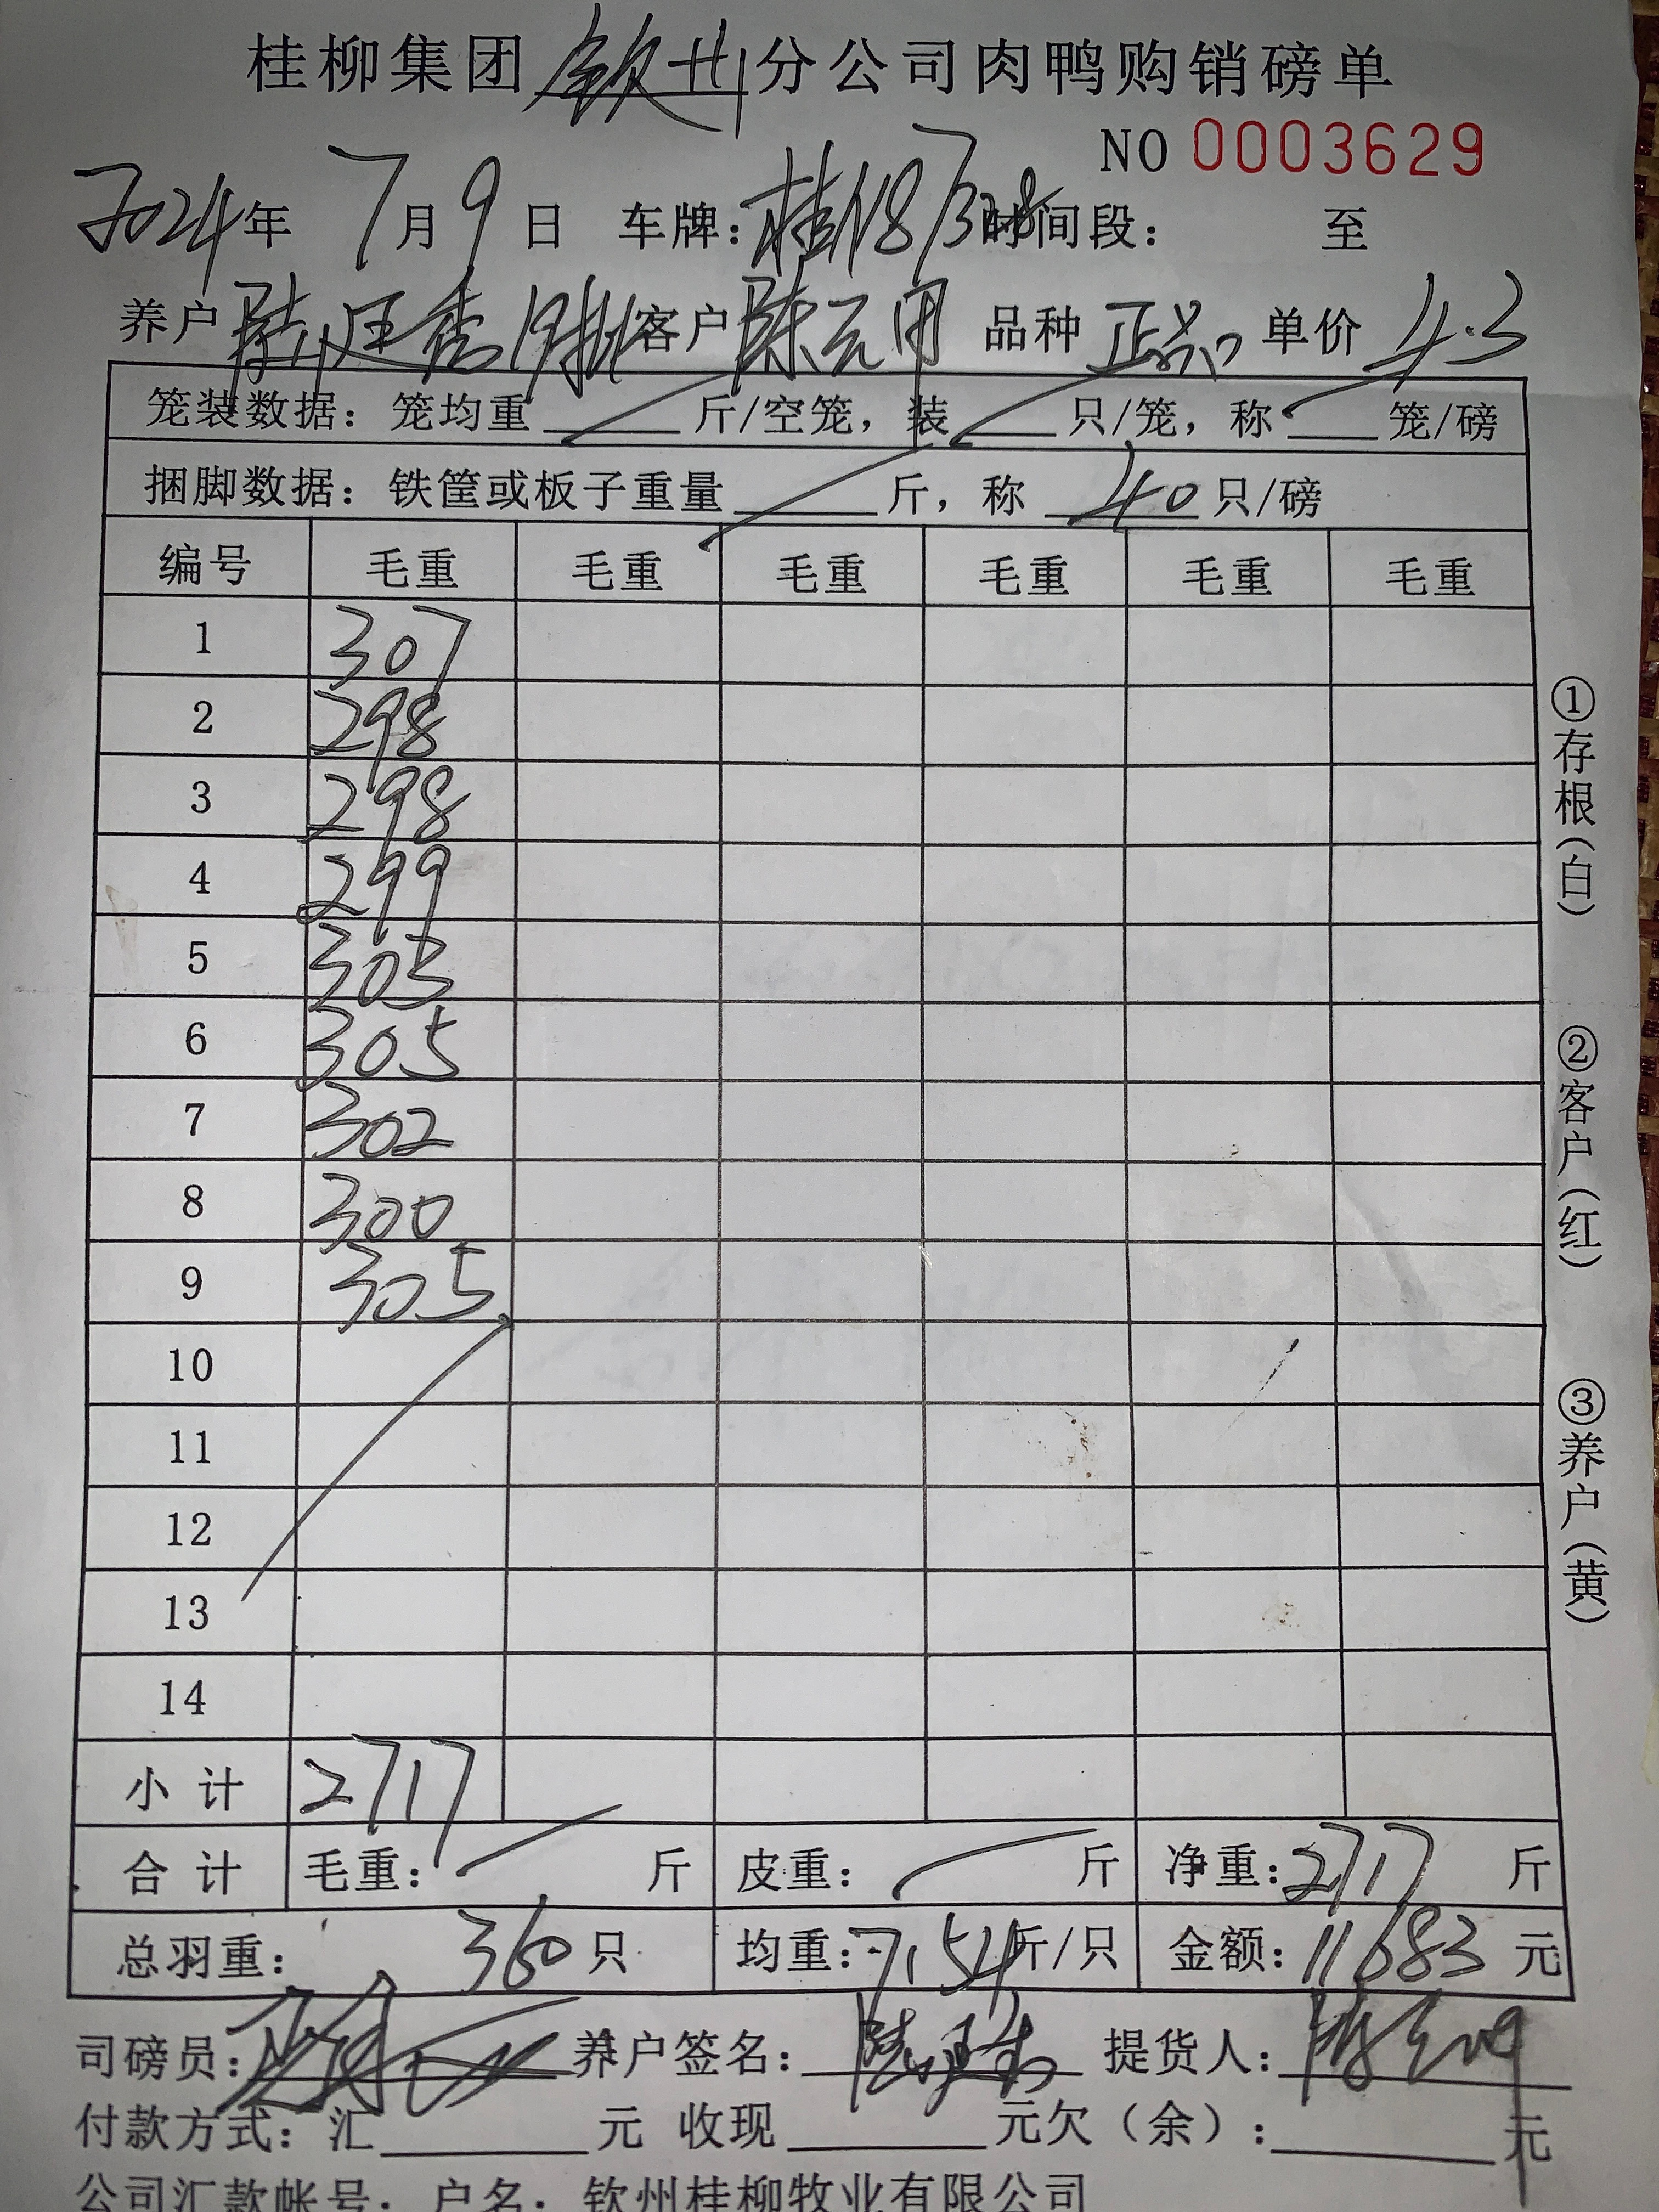 桂柳集团钦州分公司肉鸭购销磅单
NO 0003629
2024年 7月9日 车牌: 时间段: 至
养户 客户 陈元用 品种 正品 单价 4.3
笼装数据: 笼均重 斤/空笼, 装 只/笼, 称 笼/磅
捆脚数据: 铁筐或板子重量 斤, 称 40 只/磅
编号 毛重 毛重 毛重 毛重 毛重 毛重
1 307
2 298
3 298
4 299
5 303
6 305
7 302
8 300
9 305
10
11
12
13
14
小计 2717
合计 毛重: 斤 皮重: 斤 净重: 2717 斤
总羽重: 360 只 均重: 7.54 斤/只 金额: 11683 元
司磅员: 养户签名: 提货人:
付款方式: 汇 元 收现 元欠(余): 元
公司汇款帐号: 户名: 钦州桂柳牧业有限公司
①存根(白)
②客户(红)
③养户(黄)